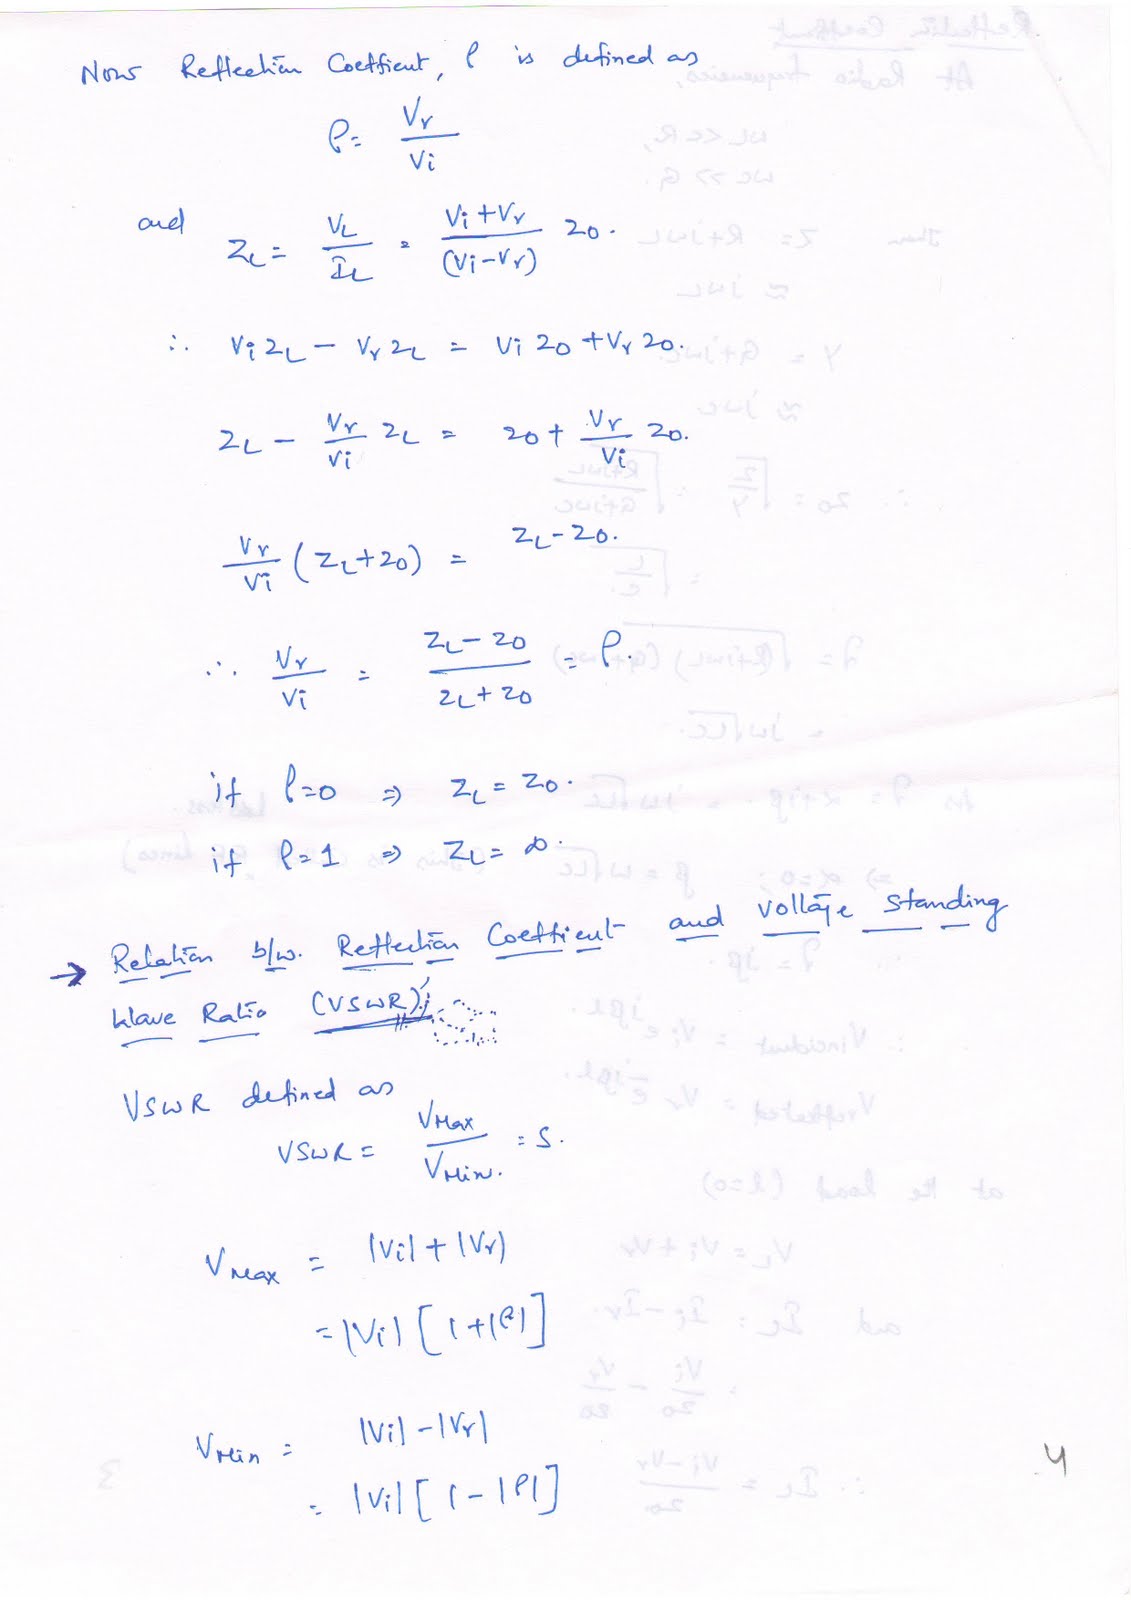 Now Reflection Coeffient, ρ is defined as
ρ = Vr / Vi
and ZL = VL / IL = Vi + Vr / (Vi - Vr) Z0.
∴ Vi ZL - Vr ZL = Vi Z0 + Vr Z0.
ZL - Vr / Vi ZL = Z0 + Vr / Vi Z0.
Vr / Vi (ZL + Z0) = ZL - Z0.
∴ Vr / Vi = ZL - Z0 / ZL + Z0 = ρ.
if ρ=0 ⇒ ZL = Z0.
if ρ=1 ⇒ ZL = ∞.
→ Relation b/w. Reflection Coeffient and Voltage Standing
Wave Ratio (VSWR);
VSWR defined as
VSWR = VMax / VMin. = S.
VMax = |Vi| + |Vr|
= |Vi| [1 + |ρ|]
VMin = |Vi| - |Vr|
= |Vi| [1 - |ρ|]
4